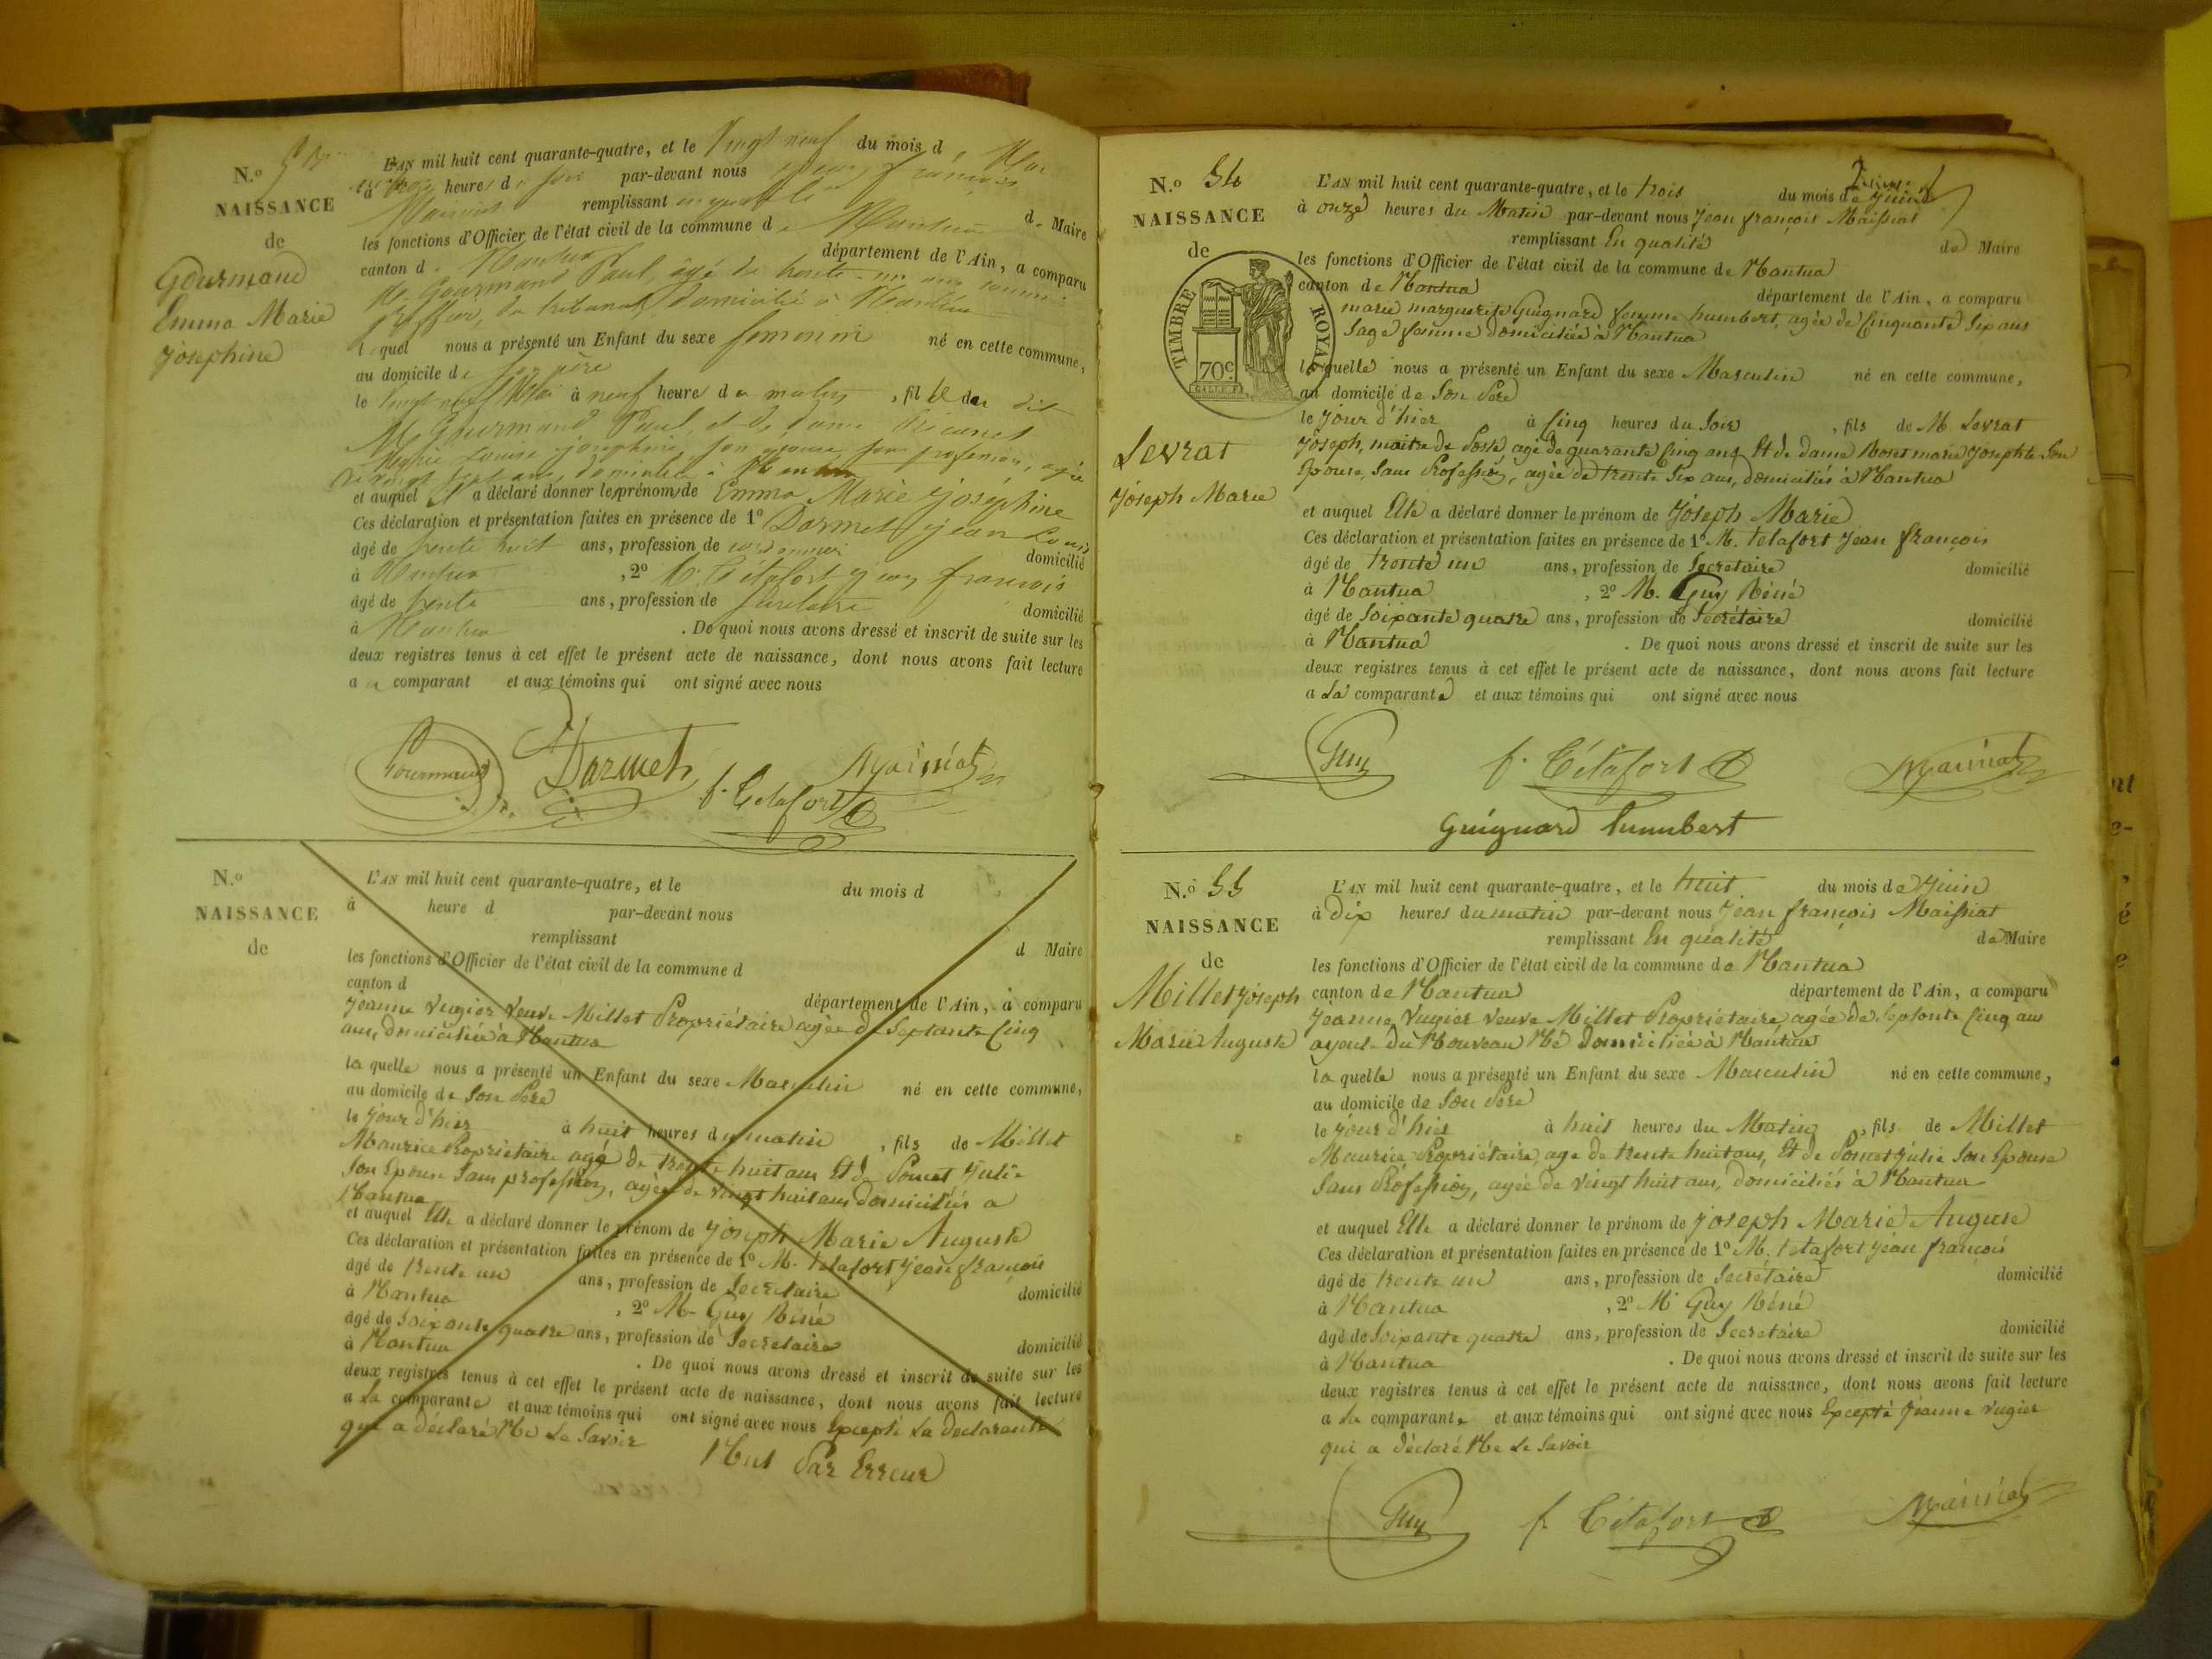 N.º
NAISSANCE
de
Gourmand
Emma Marie
josephine
L'AN mil huit cent quarante-quatre, et le Vingt neuf du mois d Mai
à heures du soir par-devant nous jean françois
Maissiat remplissant en qualité de Maire
les fonctions d'Officier de l'état civil de la commune de Mantua
canton de Nantua département de l'Ain, a comparu
M. Gourmand Paul, âgé de trente-un ans commis
Greffier, du tribunal, domicilié à Nantua
lequel nous a présenté un Enfant du sexe feminin né en cette commune,
au domicile de son père
le vingt neuf Mai à neuf heures du matin, fille du dit
M Gourmand Paul, et de dame
Marie Louise josephine, son epouse, sans profession, agée
de vingt sept ans, domiciliée à Nantua
et auquel il a déclaré donner les prénoms de Emma Marie joséphine
Ces déclaration et présentation faites en présence de 1º Darmet jean Louis
âgé de trente huit ans, profession de cordonnier domicilié
à Nantua, 2º M. Tétafort jean françois
âgé de trente ans, profession de secrétaire domicilié
à Nantua. De quoi nous avons dressé et inscrit de suite sur les
deux registres tenus à cet effet le présent acte de naissance, dont nous avons fait lecture
au comparant et aux témoins qui ont signé avec nous
Gourmand Darmet f. Tétafort Maissiat
N.º
NAISSANCE
de
L'AN mil huit cent quarante-quatre, et le du mois d
à heure d par-devant nous
remplissant d Maire
les fonctions d'Officier de l'état civil de la commune d
canton d département de l'Ain, a comparu
jeanne Vugier Veuve Millet Propriétaire agée de Septante Cinq
ans, domiciliée à Nantua
la quelle nous a présenté un Enfant du sexe Masculin né en cette commune,
au domicile de Son Père
le jour d'hier à huit heures du matin, fils de Millet
Maurice Propriétaire agé de trente huit ans Et de Poncet Julie
Son Epouse Sans profession, agée de vingt huit ans domiciliés a
Nantua
et auquel Elle a déclaré donner le prénom de joseph Marie Auguste
Ces déclaration et présentation faites en présence de 1º M. tetafort jean françois
âgé de trente un ans, profession de Secretaire domicilié
à Nantua, 2º M. Guy Réné
âgé de Soixante quatre ans, profession de Secretaire domicilié
à Nantua. De quoi nous avons dressé et inscrit de suite sur les
deux registres tenus à cet effet le présent acte de naissance, dont nous avons fait lecture
a La comparante et aux témoins qui ont signé avec nous Excepté La Declarante
qui a déclaré Ne Le Savoir
Nul Par Erreur
N.º 54
NAISSANCE
de
TIMBRE ROYAL
70c
Levrat
joseph Marie
L'AN mil huit cent quarante-quatre, et le trois du mois de juin
à onze heures du Matin par-devant nous jean françois Maissiat
remplissant En qualité de Maire
les fonctions d'Officier de l'état civil de la commune de Nantua
canton de Nantua département de l'Ain, a comparu
marie marguerite Guignard femme humbert, agée de Cinquante Six ans
Sage femme domiciliée à Nantua
la quelle nous a présenté un Enfant du sexe Masculin né en cette commune,
au domicile de Son Père
le jour d'hier à Cinq heures du Soir, fils de M Levrat
joseph, maitre de Poste, agé de quarante Cinq ans Et de dame marie josephte Son
Epouse, Sans Profession, agée de trente Six ans, domiciliés à Nantua
et auquel Elle a déclaré donner le prénom de joseph Marie
Ces déclaration et présentation faites en présence de 1º M. tetafort jean françois
âgé de trente un ans, profession de Secretaire domicilié
à Nantua, 2º M. Guy Réné
âgé de Soixante quatre ans, profession de Secrétaire domicilié
à Nantua. De quoi nous avons dressé et inscrit de suite sur les
deux registres tenus à cet effet le présent acte de naissance, dont nous avons fait lecture
a La comparante et aux témoins qui ont signé avec nous
Guy f. Tétafort Maissiat
Guignard humbert
N.º 55
NAISSANCE
de
Millet joseph
Marie Auguste
L'AN mil huit cent quarante-quatre, et le huit du mois de juin
à dix heures du matin par-devant nous jean françois Maissiat
remplissant En qualité de Maire
les fonctions d'Officier de l'état civil de la commune de Nantua
canton de Nantua département de l'Ain, a comparu
jeanne Vugier Veuve Millet Propriétaire agée de Septante Cinq ans
ayeule du Nouveau Né domiciliée à Nantua
la quelle nous a présenté un Enfant du sexe Masculin né en cette commune,
au domicile de Son Père
le jour d'hier à huit heures du Matin, fils de Millet
Maurice Propriétaire, age de trente huit ans, Et de Poncet Julie Son Epouse
Sans Profession, agée de vingt huit ans, domiciliés à Nantua
et auquel Elle a déclaré donner le prénom de joseph Marie Auguste
Ces déclaration et présentation faites en présence de 1º M. tetafort jean françois
âgé de trente un ans, profession de Secrétaire domicilié
à Nantua, 2º M Guy Réné
âgé de Soixante quatre ans, profession de Secretaire domicilié
à Nantua. De quoi nous avons dressé et inscrit de suite sur les
deux registres tenus à cet effet le présent acte de naissance, dont nous avons fait lecture
a La comparante et aux témoins qui ont signé avec nous Excepté jeanne Vugier
qui a déclaré Ne Le Savoir
Guy f. Tétafort Maissiat